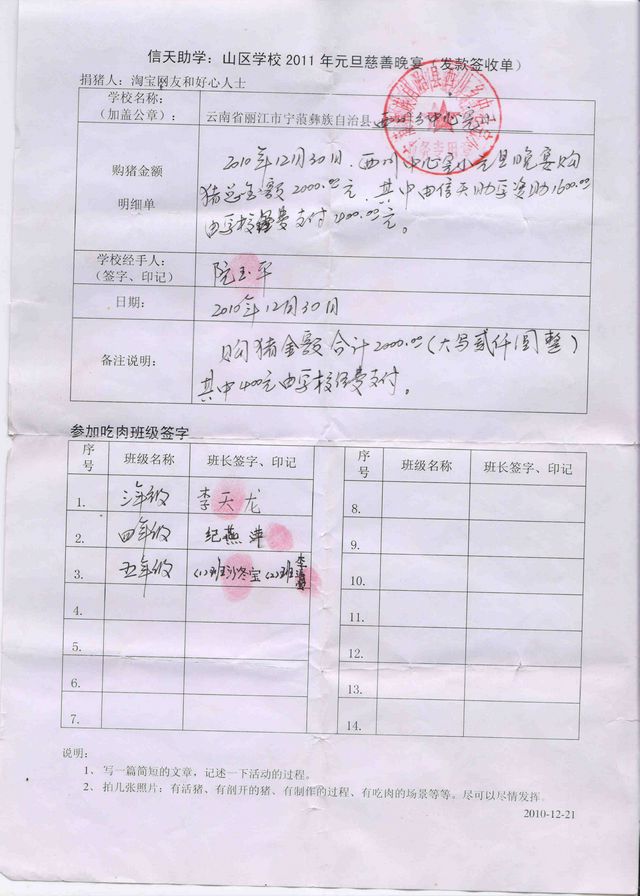 信天助学：山区学校 2011 年元旦慈善晚宴（发款签收单）
捐猪人：淘宝网友和好心人士
学校名称：
（加盖公章）：
云南省丽江市宁蒗彝族自治县西川乡中心完小
购猪金额
明细单
2010年12月30日，西川中心完小元旦晚宴购
猪总金额2000.00元，其中由信天助学资助1600.00
由学校经费支付400.00元。
学校经手人：
（签字、印记）
阮玉平
日期：
2010年12月30日
备注说明：
购猪金额合计2000.00（大写贰仟圆整）
其中400元由学校经费支付。
参加吃肉班级签字
序号 班级名称 班长签字、印记 序号 班级名称 班长签字、印记
1. 三年级 李天龙 8.
2. 四年级 纪燕萍 9.
3. 五年级 (1)班沙冬宝 (2)班李 10.
4. 11.
5. 12.
6. 13.
7. 14.
说明：
1、 写一篇简短的文章，记述一下活动的过程。
2、 拍几张照片：有活猪、有剖开的猪、有制作的过程、有吃肉的场景等等。尽可以尽情发挥。
2010-12-21